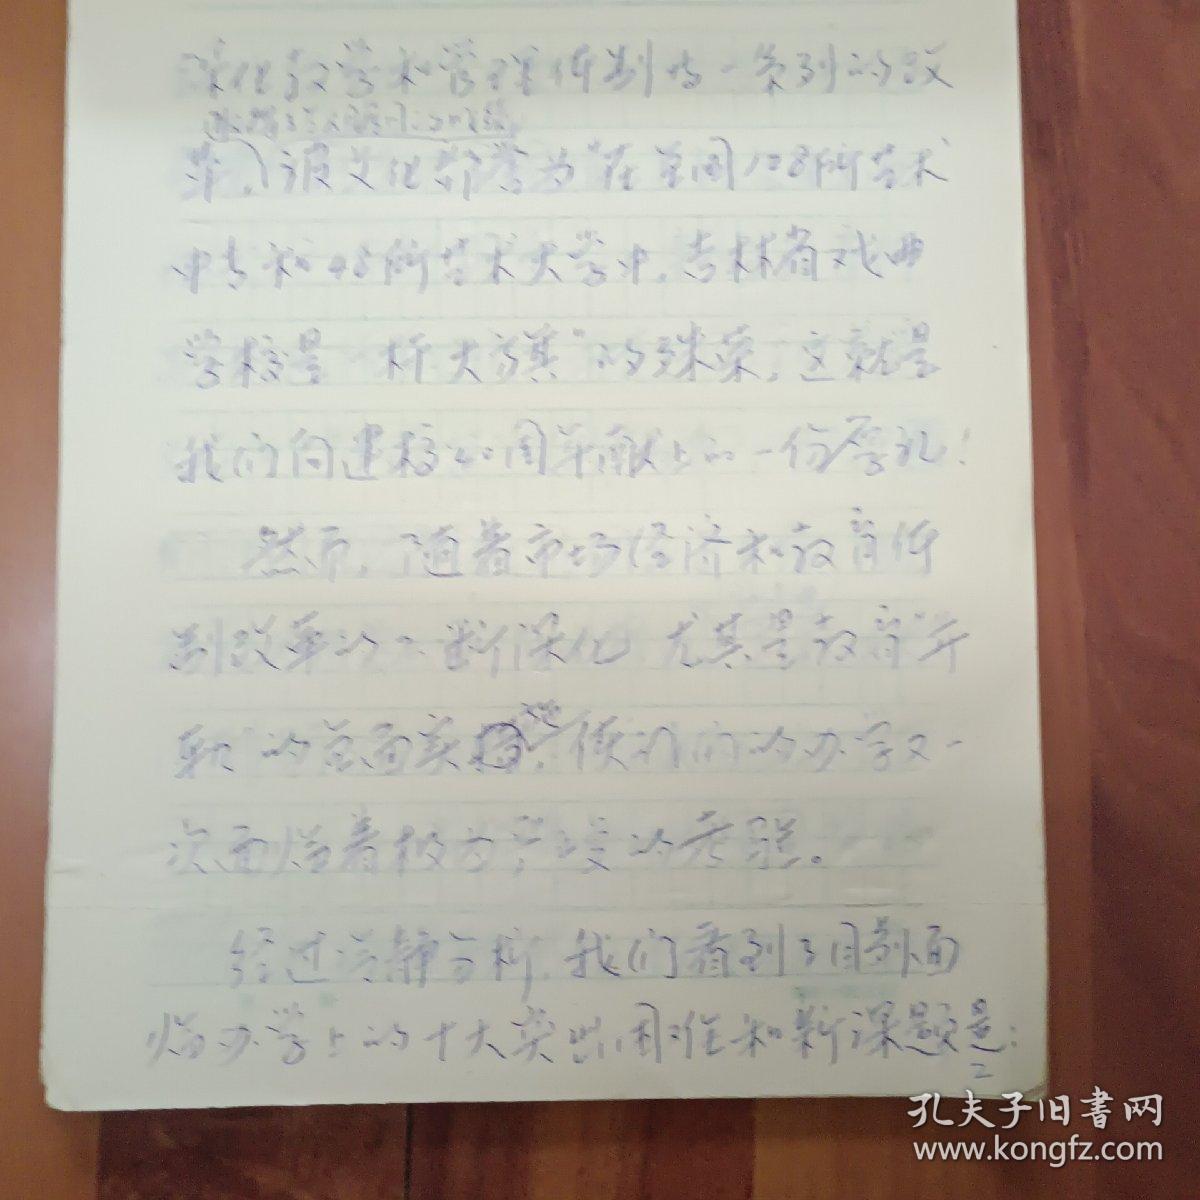 深化教学和管理体制等一系列的改
革，被文化部誉为“在全国128所艺术
中专和48所艺术大学中，吉林省戏曲
学校是一杆大旗”的殊荣，这就是
我们向建校40周年献上的一份厚礼！
然而，随着市场经济和教育体
制改革的不断深化 尤其是教育“并
轨”的全面实施，使我们的办学又一
次面临着极为严峻的考验。
经过冷静分析，我们看到了目前面
临办学上的十大突出困难和新课题是：
2
孔夫子旧書网
www.kongfz.com